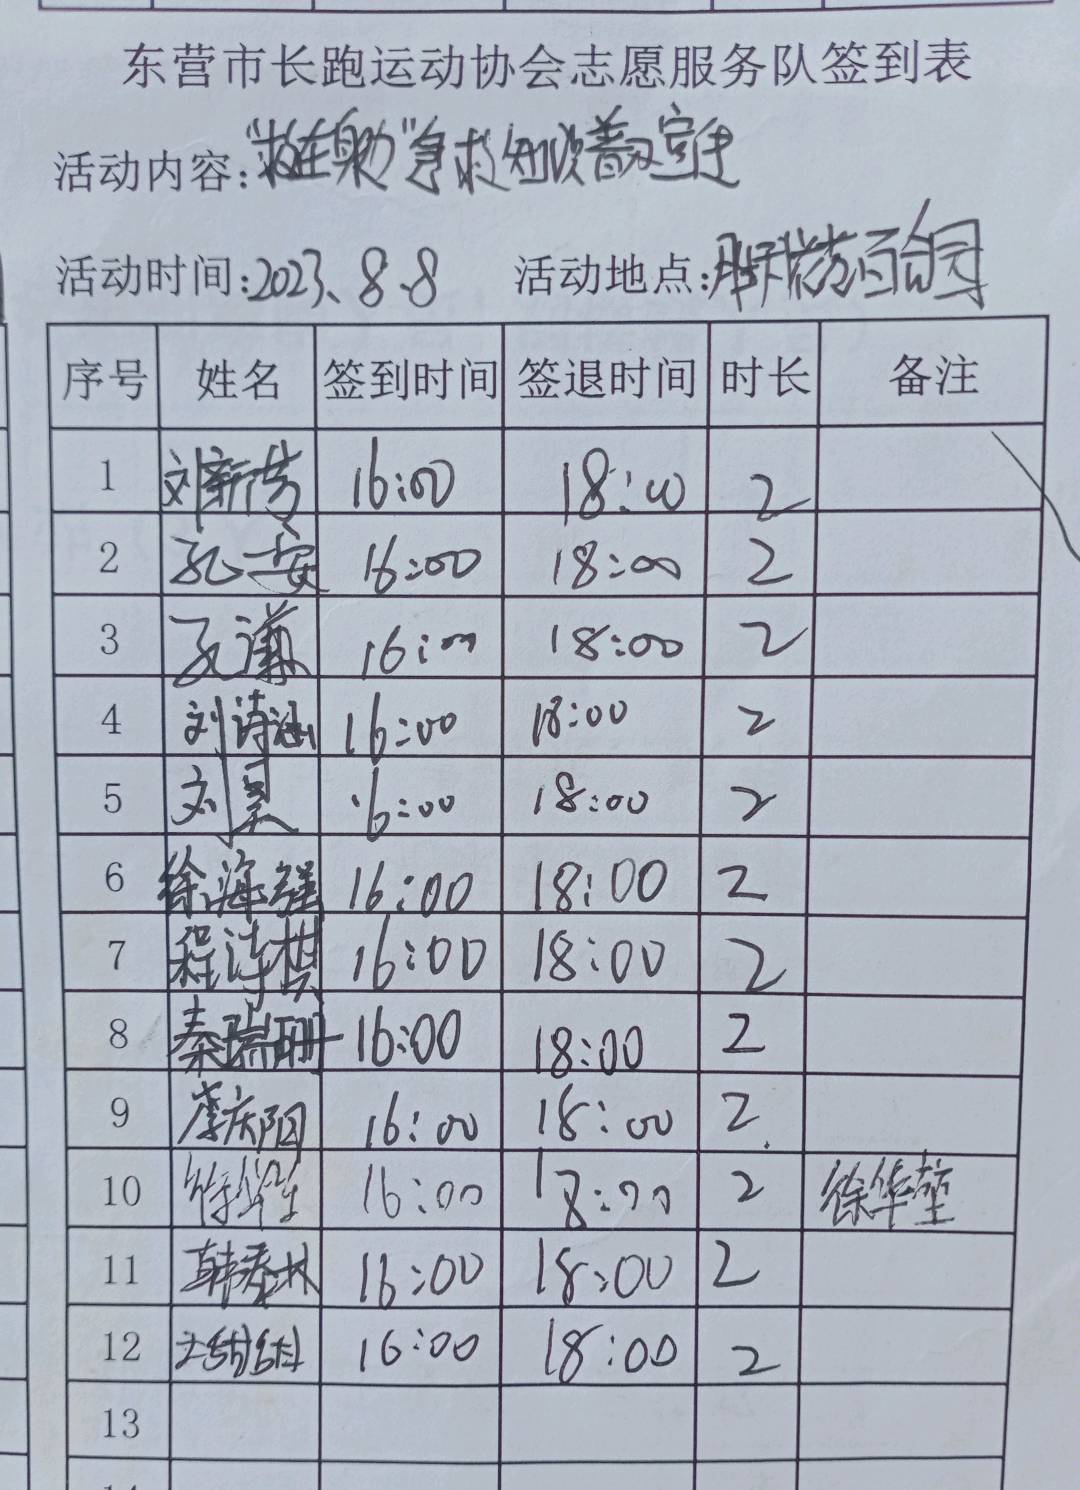 东营市长跑运动协会志愿服务队签到表
活动内容:"救在身边"急救知识普及宣传
活动时间:2023.8.8 活动地点:
序号 姓名 签到时间 签退时间 时长 备注
1 刘新芳 16:00 18:00 2
2 孔安 16:00 18:00 2
3 孔潇 16:00 18:00 2
4 刘诗涵 16:00 18:00 2
5 刘昊 16:00 18:00 2
6 徐海强 16:00 18:00 2
7 程诗棋 16:00 18:00 2
8 秦瑞珊 16:00 18:00 2
9 李庆阳 16:00 18:00 2
10 徐华堂 16:00 18:00 2 徐华堂
11 韩春林 16:00 18:00 2
12 16:00 18:00 2
13